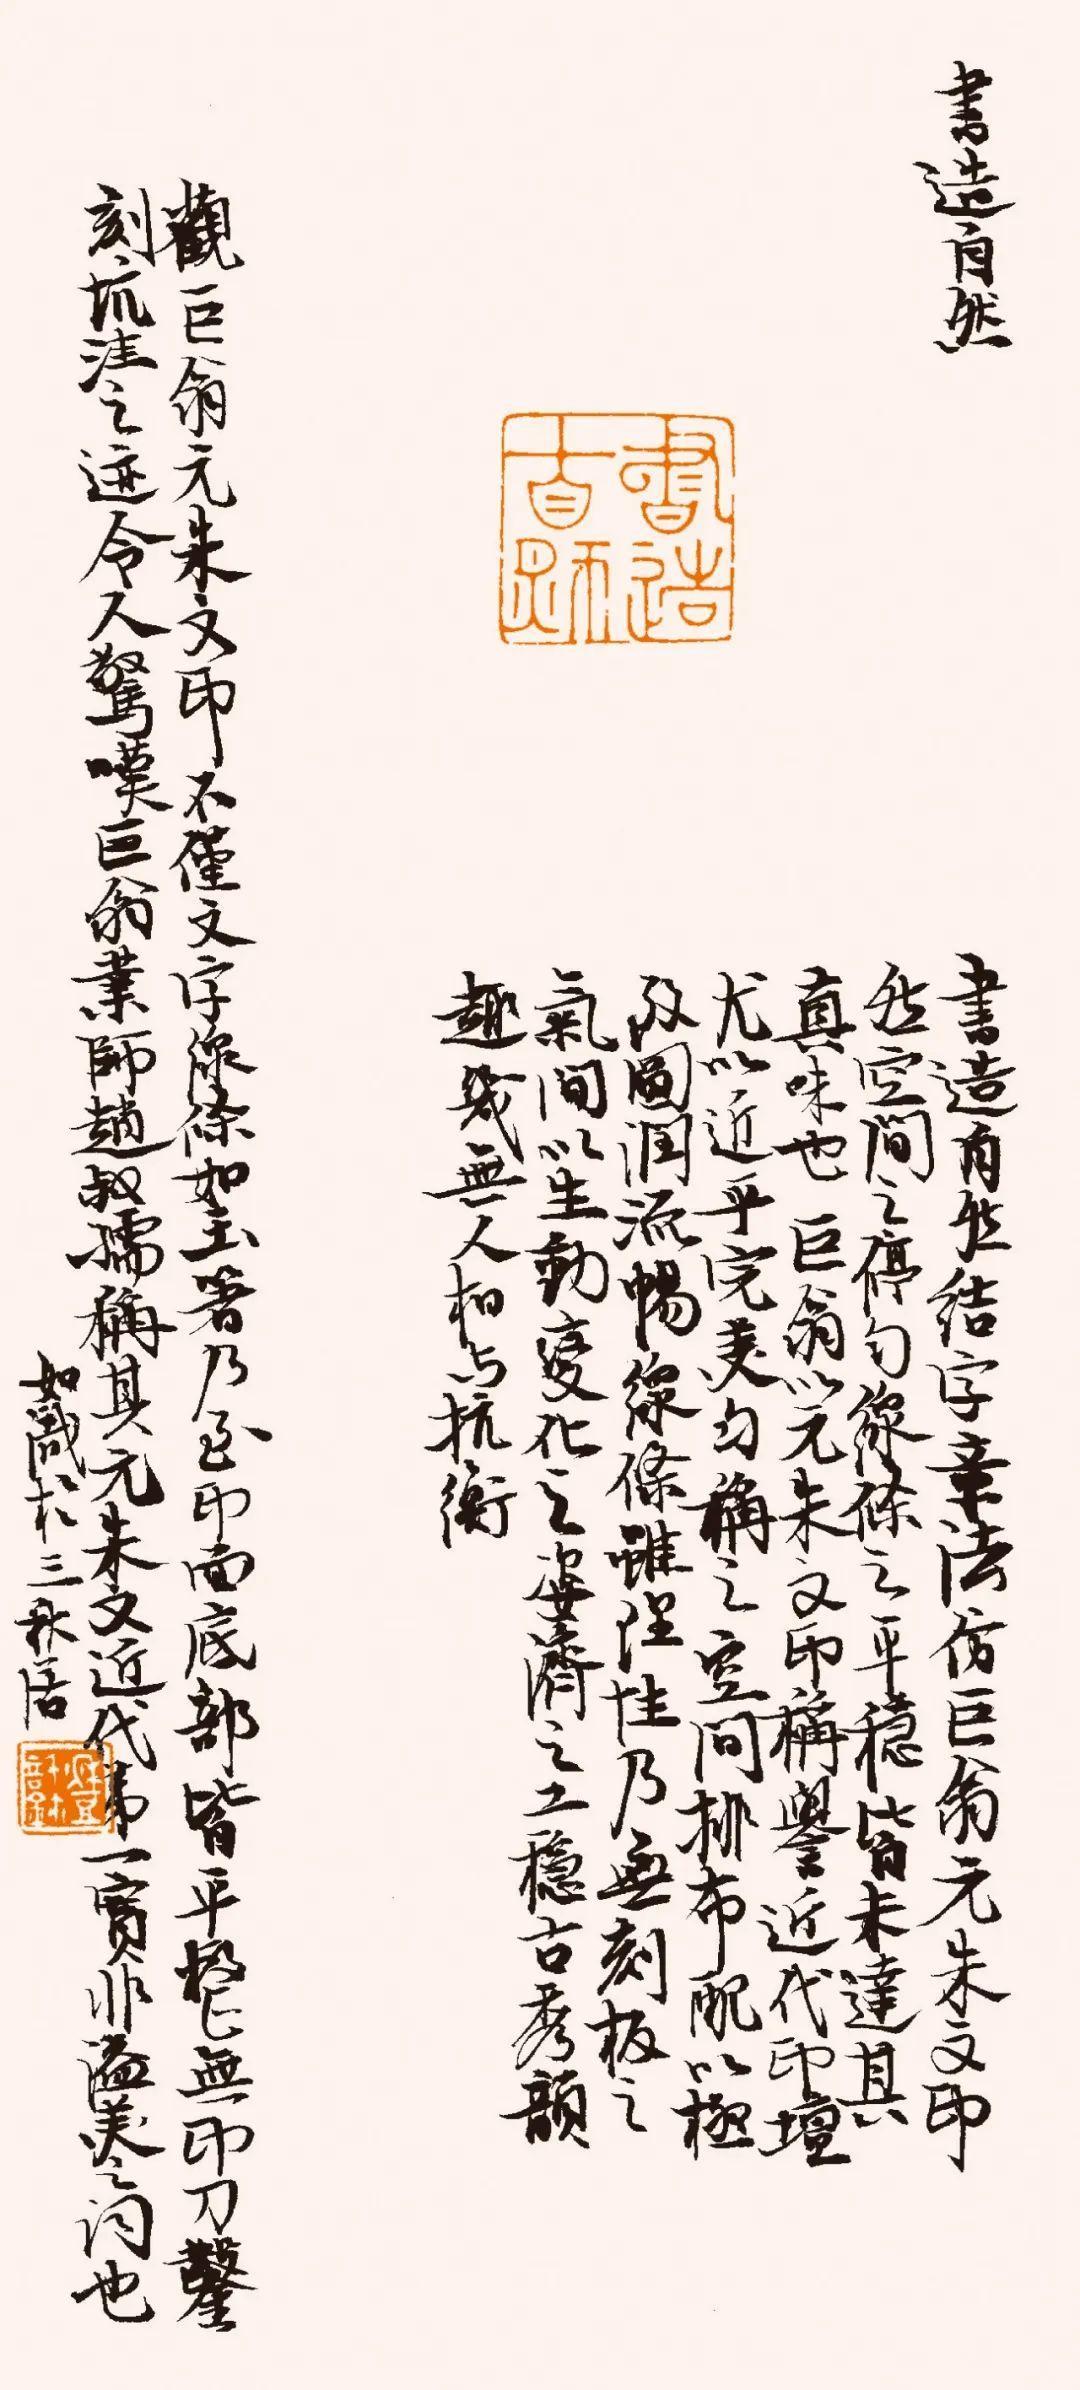 書造自然
書造自然
書造自然結字章法仿巨翁元朱文印
然空間之停勻線條之平穩皆未達其
真味也巨翁以元朱文印稱譽近代印壇
尤以近乎完美勻稱之空間排布配以極
圓潤流暢線條雖理性乃無刻板之
氣間以生動變化之姿濟之工穩古秀韻
趣幾無人相與抗衡
觀巨翁元朱文印不僅文字線條如玉箸乃至印面底部皆平整無印刀鑿
刻坑洼之迹令人驚嘆巨翁業師趙叔孺稱其元朱文近代第一實非溢美之詞也
如識於三秋居